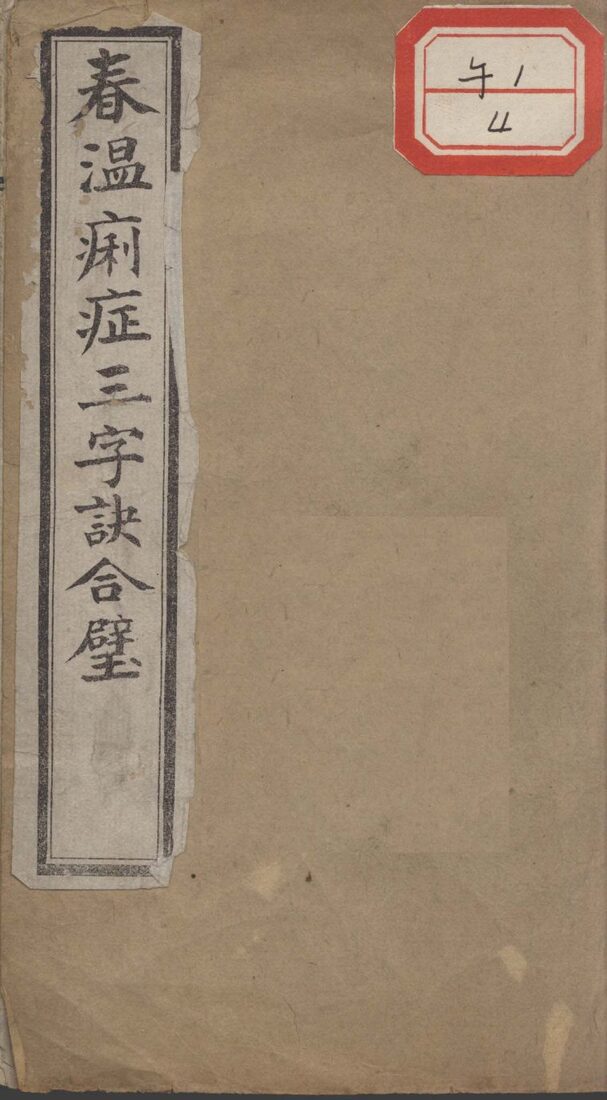 春温痢症三字訣合璧
午1
4